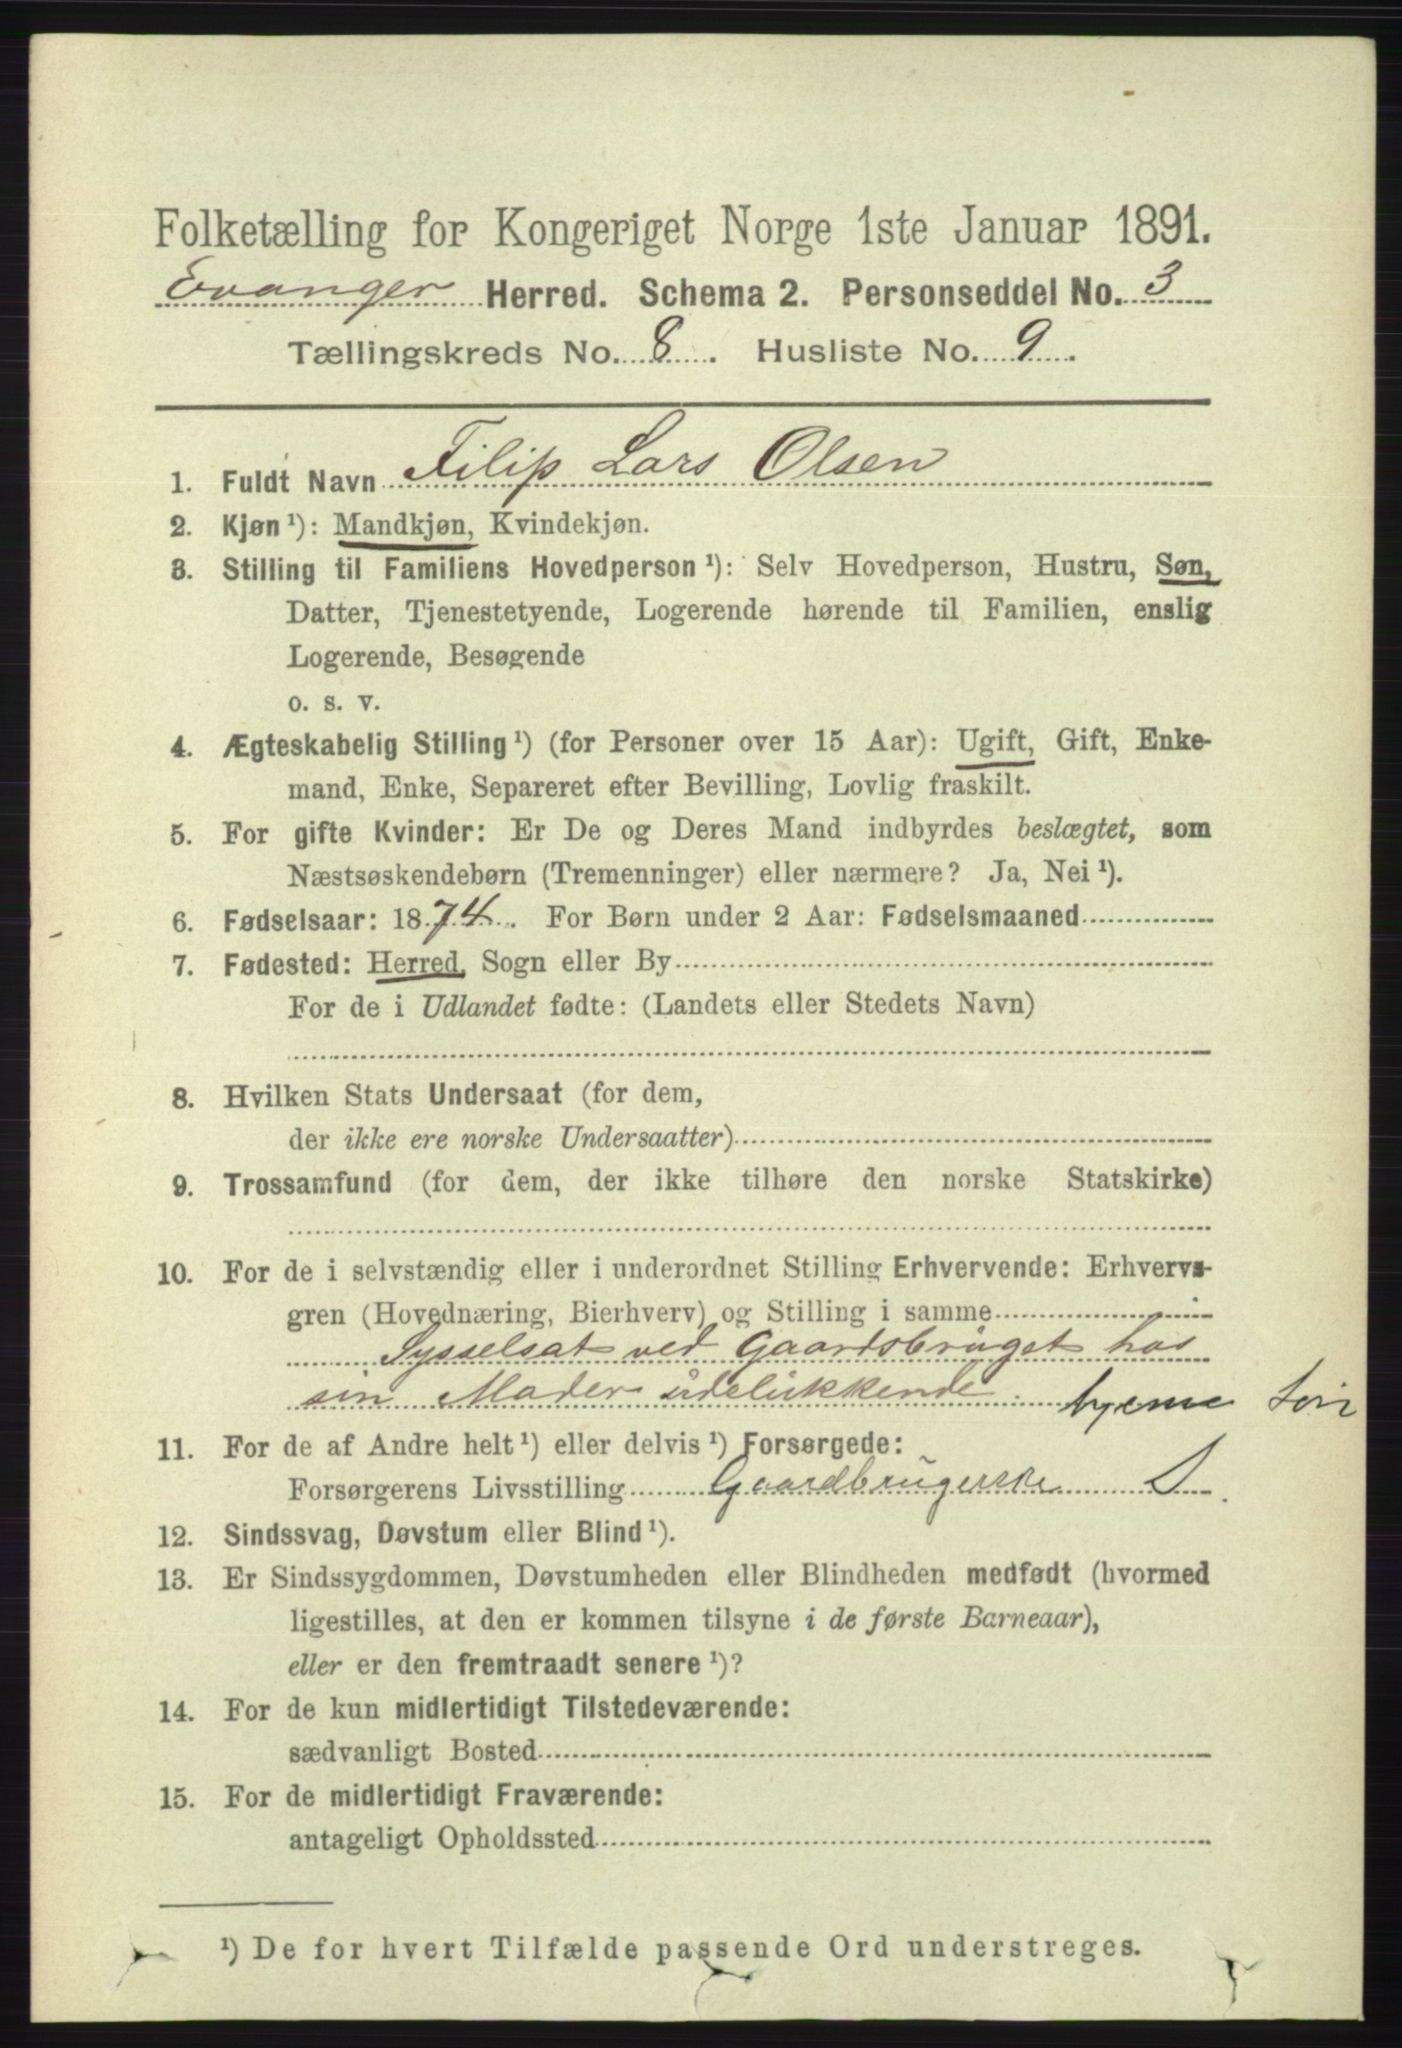 Folketælling for Kongeriget Norge 1ste Januar 1891.
Evanger Herred. Schema 2. Personseddel No. 3
Tællingskreds No. 8. Husliste No. 9.
1. Fuldt Navn Filip Lars Olsen
2. Kjøn ¹): Mandkjøn, Kvindekjøn.
3. Stilling til Familiens Hovedperson ¹): Selv Hovedperson, Hustru, Søn,
Datter, Tjenestetyende, Logerende hørende til Familien, enslig
Logerende, Besøgende
o. s. v.
4. Ægteskabelig Stilling ¹) (for Personer over 15 Aar): Ugift, Gift, Enke-
mand, Enke, Separeret efter Bevilling, Lovlig fraskilt.
5. For gifte Kvinder: Er De og Deres Mand indbyrdes beslægtet, som
Næstsøskendebørn (Tremenninger) eller nærmere? Ja, Nei ¹).
6. Fødselsaar: 1874. For Børn under 2 Aar: Fødselsmaaned
7. Fødested: Herred, Sogn eller By
For de i Udlandet fødte: (Landets eller Stedets Navn)
8. Hvilken Stats Undersaat (for dem,
der ikke ere norske Undersaatter)
9. Trossamfund (for dem, der ikke tilhøre den norske Statskirke)
10. For de i selvstændig eller i underordnet Stilling Erhvervende: Erhvervs-
gren (Hovednæring, Bierhverv) og Stilling i samme
Sysselsat ved Gaardsbruget hos
sin Moder udelukkende. hjeme
11. For de af Andre helt ¹) eller delvis ¹) Forsørgede:
Forsørgerens Livsstilling Gaardbrugerske S
12. Sindssvag, Døvstum eller Blind ¹).
13. Er Sindssygdommen, Døvstumheden eller Blindheden medfødt (hvormed
ligestilles, at den er kommen tilsyne i de første Barneaar),
eller er den fremtraadt senere ¹)?
14. For de kun midlertidigt Tilstedeværende:
sædvanligt Bosted
15. For de midlertidigt Fraværende:
antageligt Opholdssted
¹) De for hvert Tilfælde passende Ord understreges.